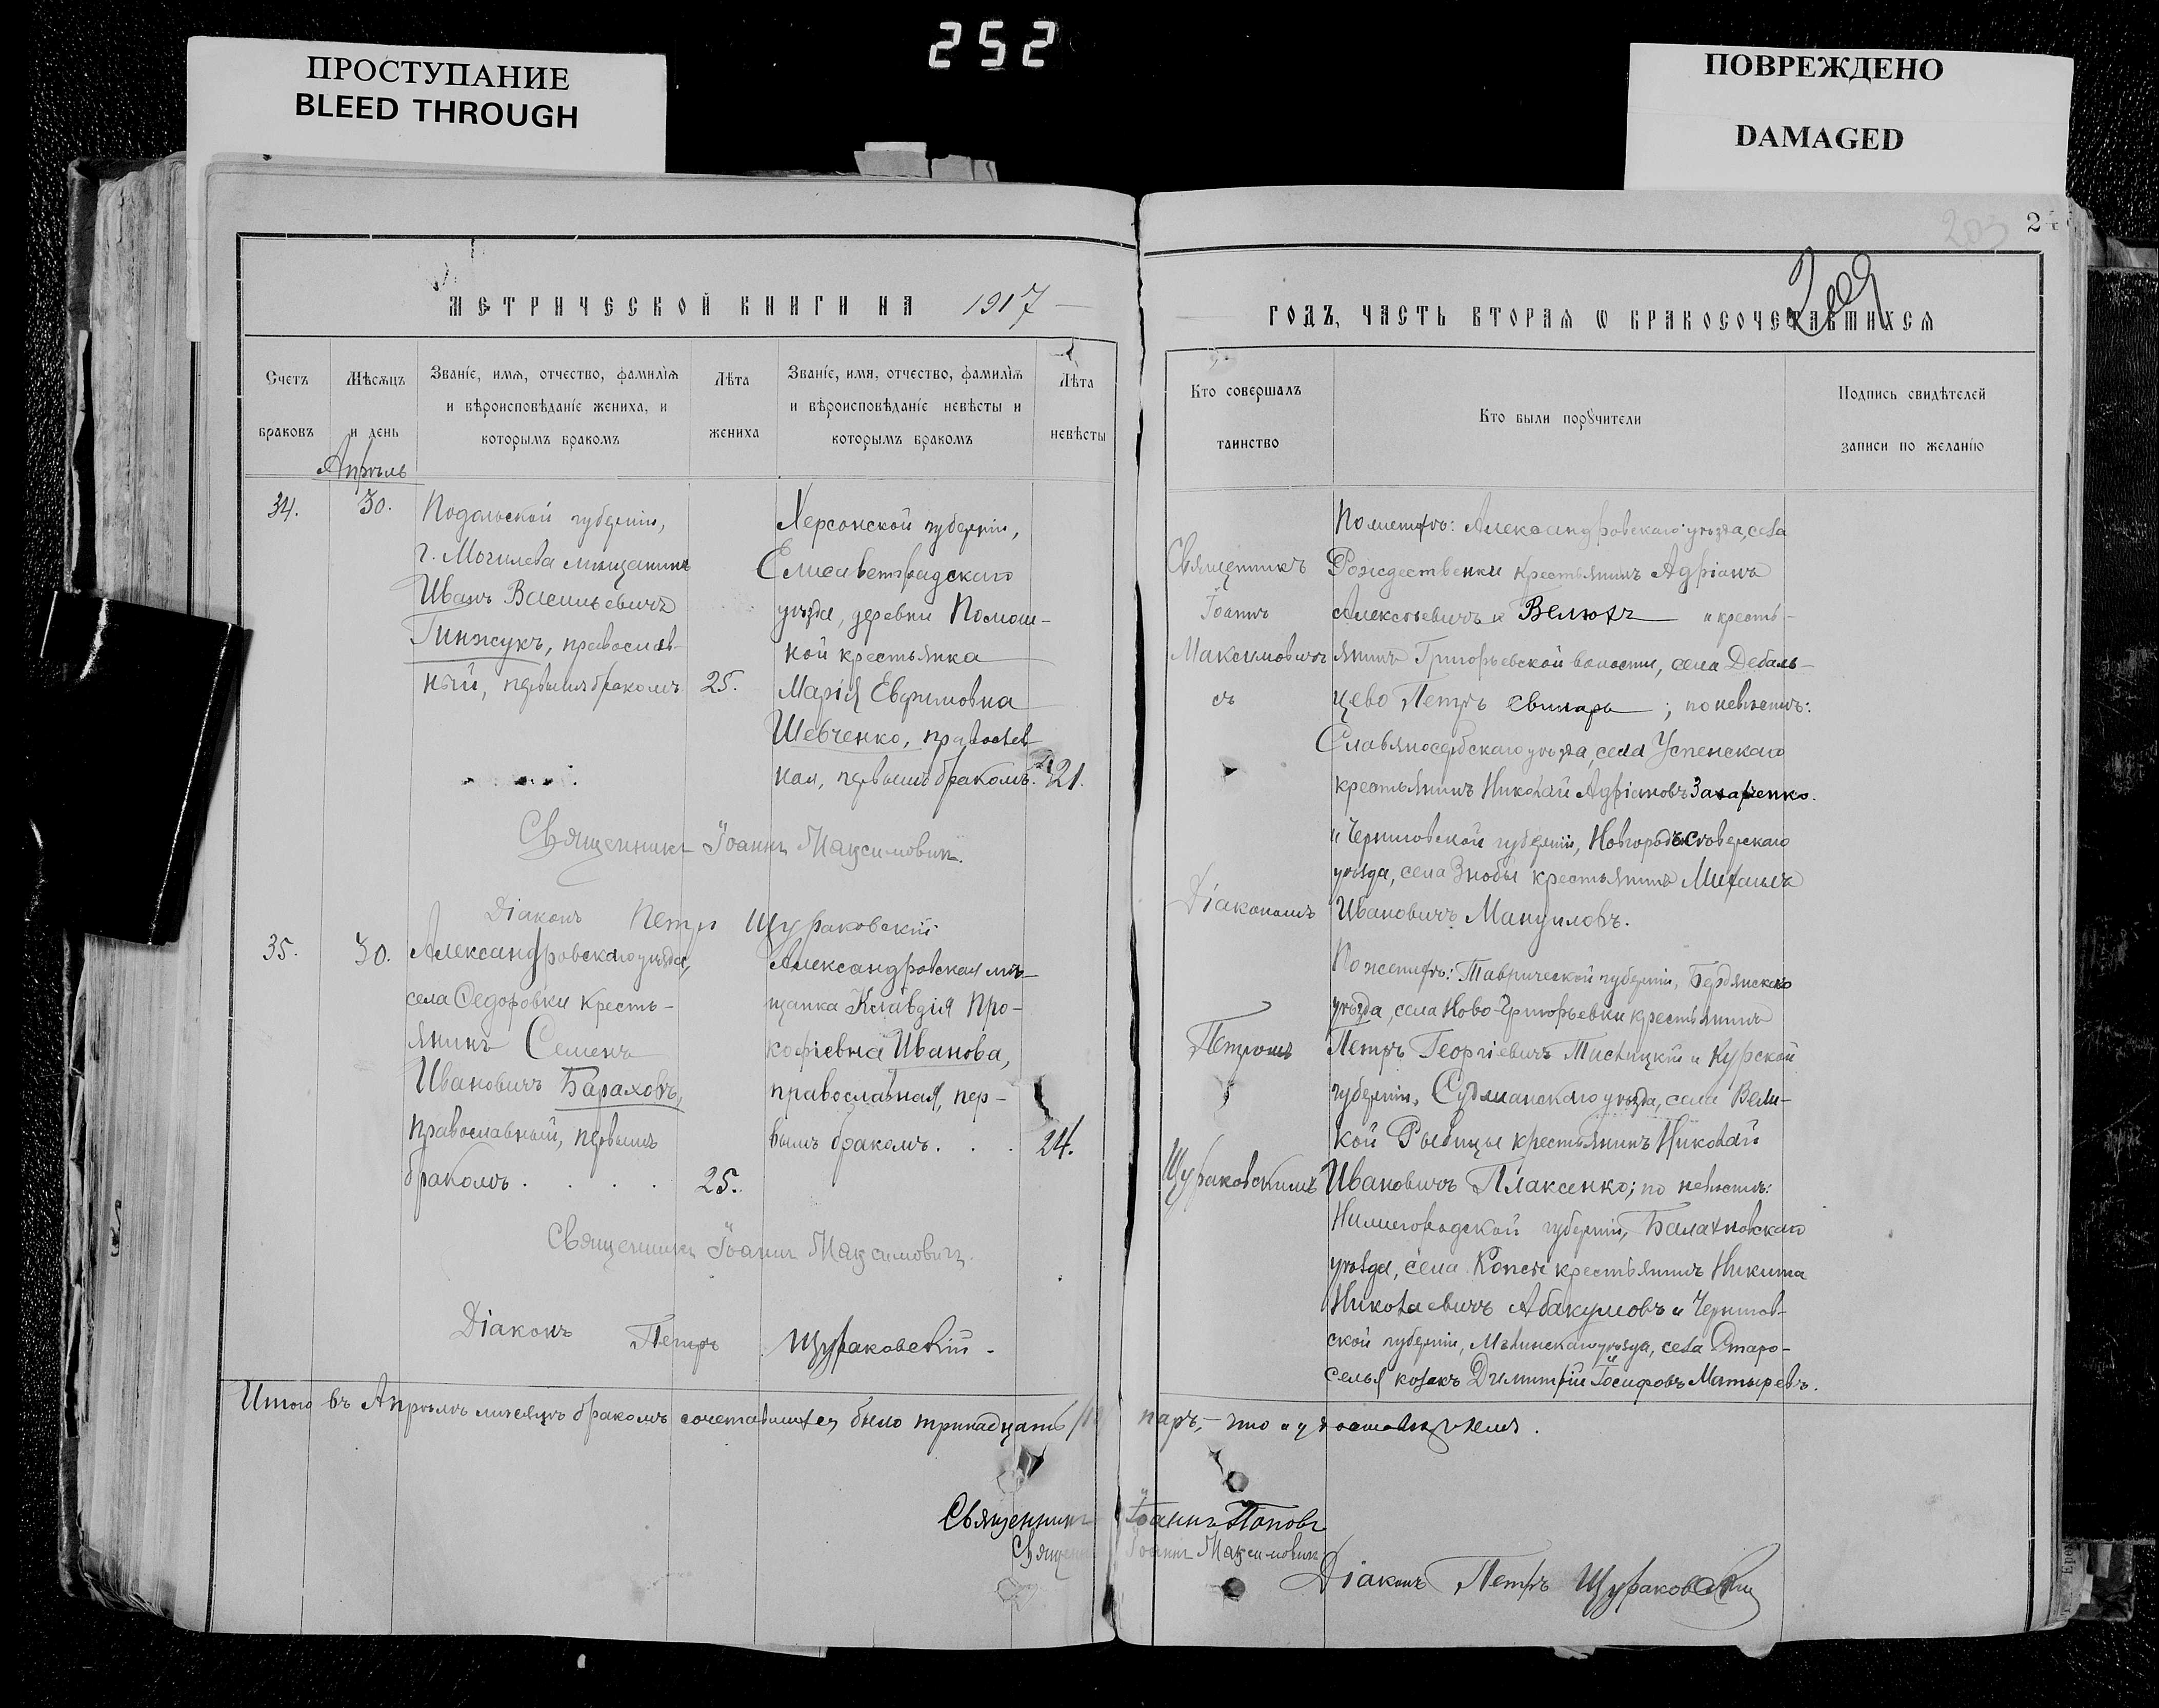 252
ПРОСТУПАНИЕ
BLEED THROUGH
ПОВРЕЖДЕНО
DAMAGED
МЕТРИЧЕСКОЙ КНИГИ НА 1917
Счетъ браковъ
Мѣсяцъ и день
Званіе, имя, отчество, фамилія и вѣроисповѣданіе жениха, и которымъ бракомъ
Лѣта жениха
Званіе, имя, отчество, фамилія и вѣроисповѣданіе невѣсты и которымъ бракомъ
Лѣта невѣсты
Апрѣль
34.
30.
Подольской губерніи,
г. Могилева мѣщанинъ
Иванъ Васильевичъ
Гинжукъ, православ-
ный, первымъ бракомъ
25.
Херсонской губерніи,
Елисаветградскаго
уѣзда, деревни Помош-
ной крестьянка
Марія Евфимовна
Шевченко, православ-
ная, первымъ бракомъ.
21.
Священникъ Іоаннъ Максимовичъ.
Діаконъ Петръ Щураковскій
35.
30.
Александровскаго уѣзда,
села Федоровки кресть-
янинъ Семенъ
Ивановичъ Бараховъ,
православный, первымъ
бракомъ . . . .
25.
Александровская мѣ-
щанка Клавдія Про-
кофіевна Иванова,
православная, пер-
вымъ бракомъ. . .
24.
Священникъ Іоаннъ Максимовичъ.
Діаконъ Петръ Щураковскій.
Итого въ Апрѣлѣ мѣсяцѣ бракомъ сочетавшихся было тринадцать
Священникъ
2
ГОДЪ, ЧАСТЬ ВТОРАЯ Ѡ БРАКОСОЧЕТАВШИХСЯ
Кто совершалъ таинство
Кто были порꙋчители
Подпись свидѣтелей записи по желанію
Священникъ
Іоаннъ
Максимовичъ
съ
Діакономъ
Петромъ
Щураковскимъ
По женихѣ: Александровскаго уѣзда, села
Рождественки крестьянинъ Адріанъ
Алексѣевичъ Велюхъ и кресть-
янинъ Григорьевской волости, села Дебаль-
цево Петръ Свинарь; по невѣстѣ:
Славяносербскаго уѣзда, села Успенскаго
крестьянинъ Николай Адріановъ Захарченко
и Черниговской губерніи, Новгородъ-Сѣверскаго
уѣзда, села Знобы крестьянинъ Михаилъ
Ивановичъ Мануиловъ.
По женихѣ: Таврической губерніи, Бердянскаго
уѣзда, села Ново-Григорьевки крестьянинъ
Петръ Георгіевичъ Мислицкій и Курской
губерніи, Суджанскаго уѣзда, села Вели-
кой Рыбицы крестьянинъ Николай
Ивановичъ Плаксенко; по невѣстѣ:
Нижегородской губерніи, Балахновскаго
уѣзда, села крестьянинъ Никита
Николаевичъ Абакумовъ и Чернигов-
ской губерніи, Мглинскаго уѣзда, села Старо-
селья козакъ Димитрій Іосифовъ Матыревъ.
паръ, что и удостовѣряемъ.
Іоаннъ Поповъ
Іоаннъ Максимовичъ
Діаконъ Петръ Щураковскій